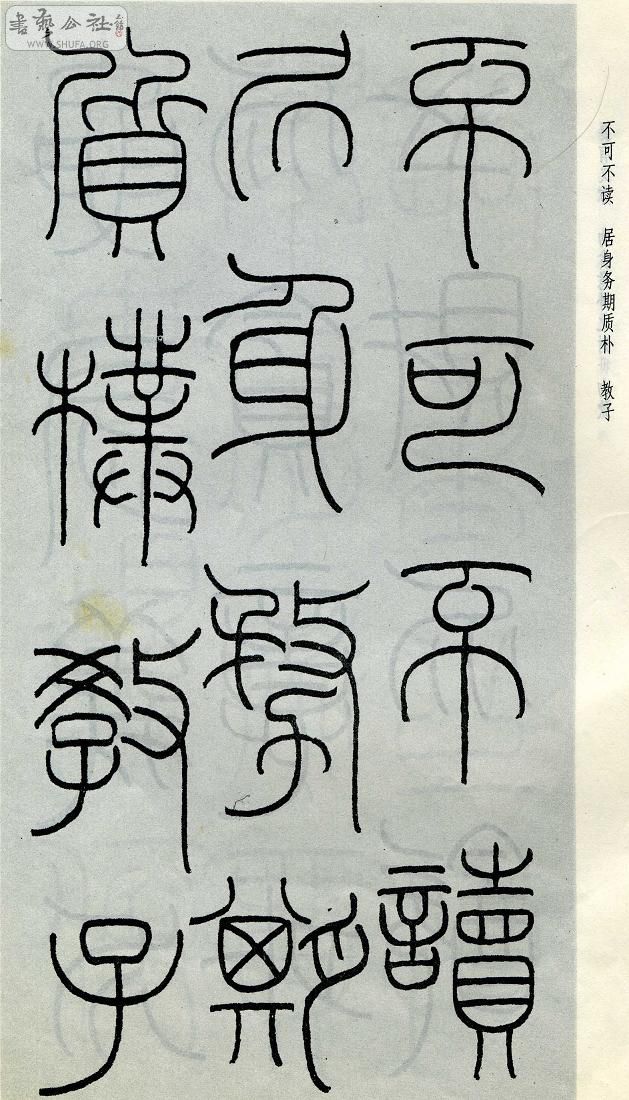 不可不讀
居身務期
質樸教子
不可不读 居身务期质朴 教子
書藝公社
WWW.SHUFA.ORG